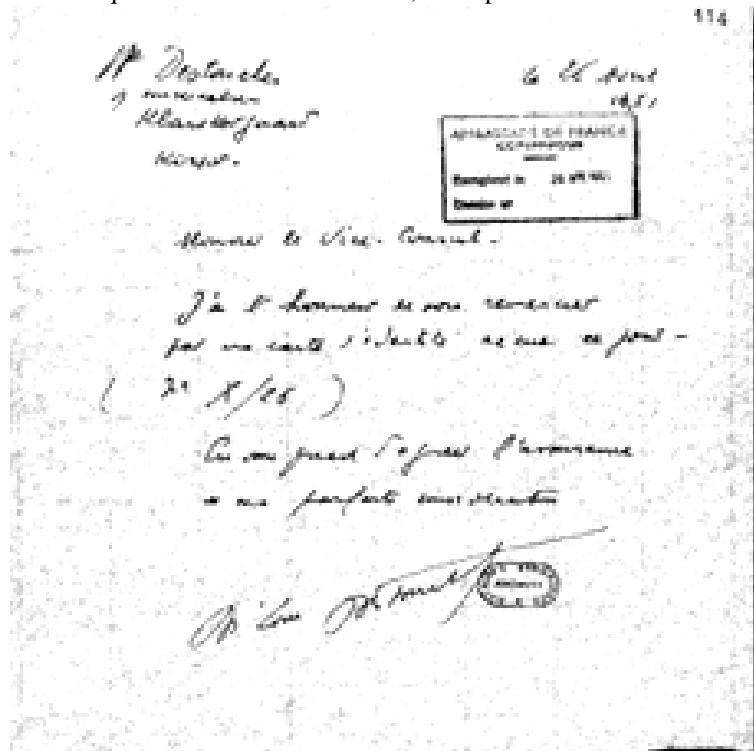 114
Dr Destouches
Klarskovgaard
Korsør.
le 26 Avril
1951
AMBASSADE DE FRANCE
Enregistré le 26 AVR 1951
Dossier nº
Monsieur le Vice-Consul.
J'ai l'honneur de vous remercier
pour ma carte d'identité reçue ce jour -
( Nº X/26 )
Je vous prie d'agréer l'assurance
de ma parfaite considération
Dr Louis Destouches